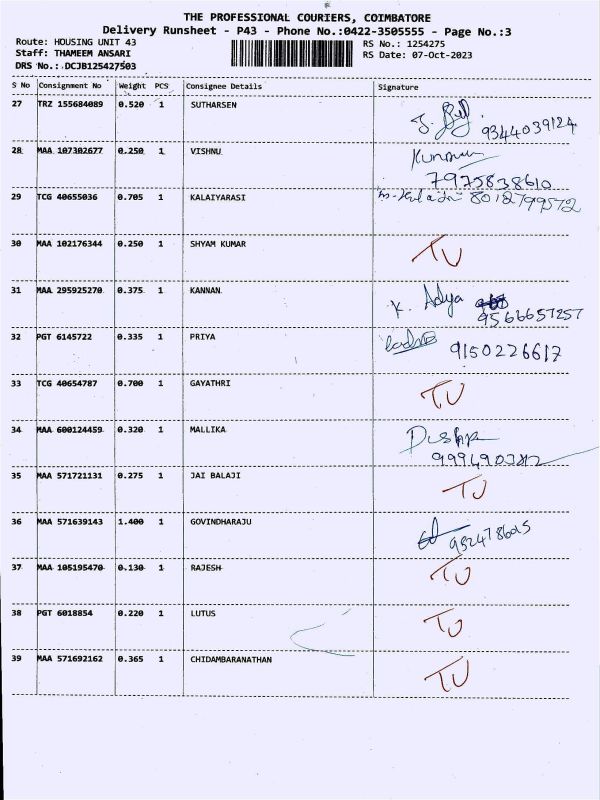 THE PROFESSIONAL COURIERS, COIMBATORE
Delivery Runsheet - P43 - Phone No.:0422-3505555 - Page No.:3
Route: HOUSING UNIT 43
Staff: THAMEEM ANSARI
DRS No.: DCJB125427503
RS No.: 1254275
RS Date: 07-Oct-2023
S No Consignment No Weight PCS Consignee Details Signature
27 TRZ 155684089 0.520 1 SUTHARSEN
9344039124
28 MAA 107302677 0.250 1 VISHNU
7975838610
29 TCG 40655036 0.705 1 KALAIYARASI 8012799572
30 MAA 102176344 0.250 1 SHYAM KUMAR TU
31 MAA 295925270 0.375 1 KANNAN K. Adya
9566657257
32 PGT 6145722 0.335 1 PRIYA 9150226617
33 TCG 40654787 0.700 1 GAYATHRI TU
34 MAA 600124459 0.320 1 MALLIKA
35 MAA 571721131 0.275 1 JAI BALAJI TU
36 MAA 571639143 1.400 1 GOVINDHARAJU
37 MAA 105195470 0.130 1 RAJESH TU
38 PGT 6018854 0.220 1 LUTUS TU
39 MAA 571692162 0.365 1 CHIDAMBARANATHAN TU